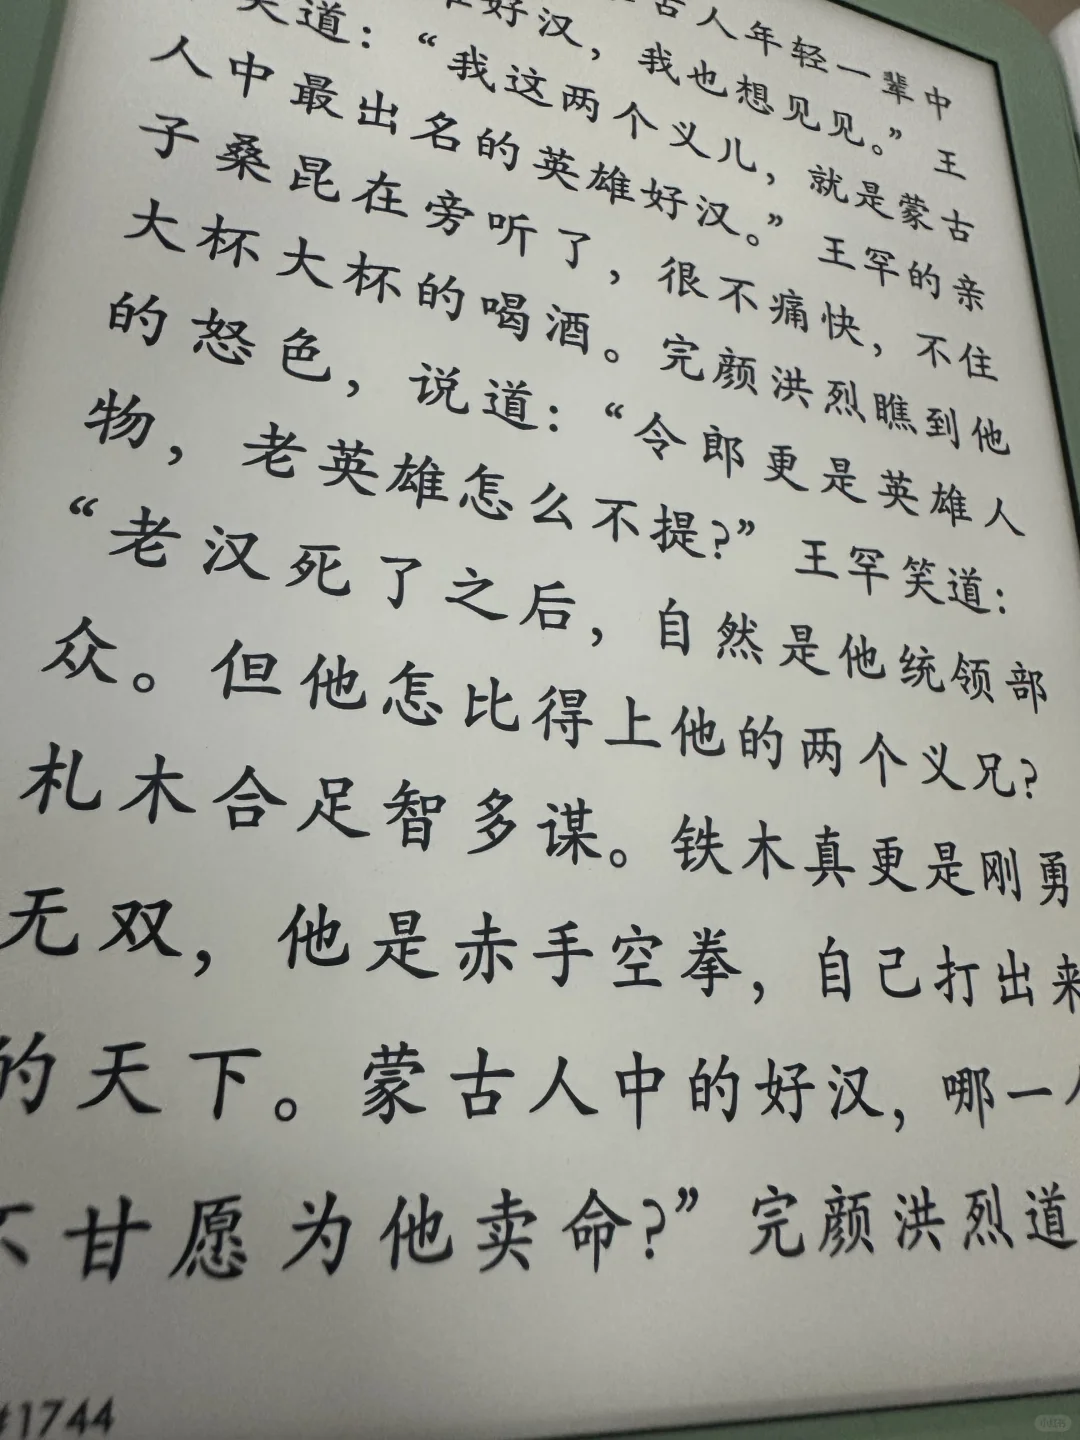 古人年轻一辈中
好汉，我也想见见。”王
笑道：“我这两个义儿，就是蒙古
人中最出名的英雄好汉。”王罕的亲
子桑昆在旁听了，很不痛快，不住
大杯大杯的喝酒。完颜洪烈瞧到他
的怒色，说道：“令郎更是英雄人
物，老英雄怎么不提?”王罕笑道：
“老汉死了之后，自然是他统领部
众。但他怎比得上他的两个义兄?
札木合足智多谋。铁木真更是刚勇
无双，他是赤手空拳，自己打出来
的天下。蒙古人中的好汉，哪一
不甘愿为他卖命?”完颜洪烈道
#1744
小红书